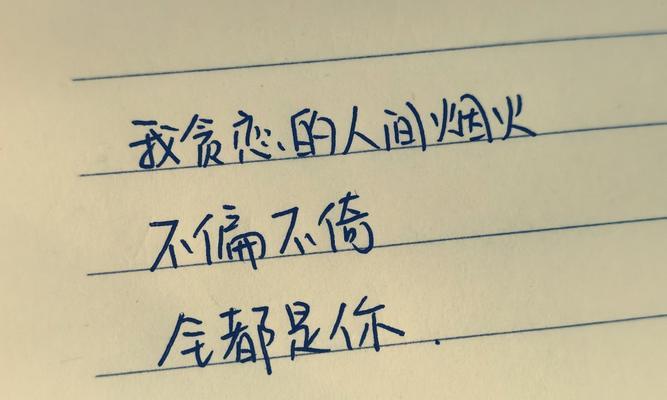 我贪恋的人间烟火
不偏不倚
全都是你.